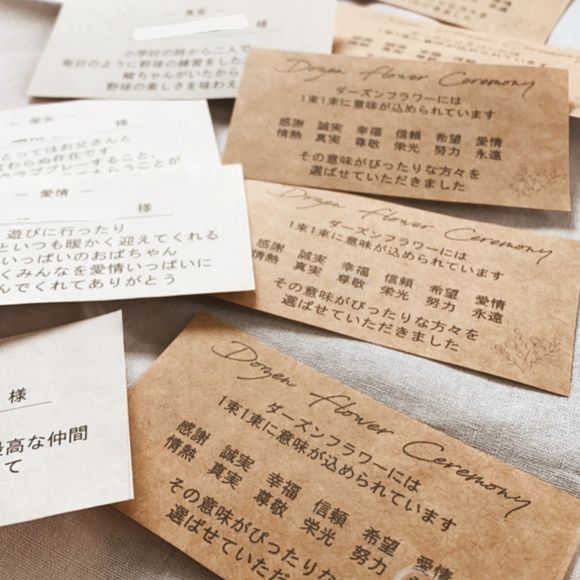 — 真実 —
様
小学校の時から二人で
毎日のように野球の練習をした
峻ちゃんがいたから
野球の楽しさを味わえ
様
とってはお父さんと
わらぬ存在です
プレーすること、
— 愛情 —
様
遊びに行ったり
といつも暖かく迎えてくれる
いっぱいのおばちゃん
くみんなを愛情いっぱいに
んでくれてありがとう
様
最高な仲間
て
Dozen flower Ceremony
ダーズンフラワーには
1束1束に意味が込められています
感謝 誠実 幸福 信頼 希望 愛情
情熱 真実 尊敬 栄光 努力 永遠
その意味がぴったりな方々を
選ばせていただきました
Dozen flower Ceremony
ダーズンフラワーには
1束1束に意味が込められています
感謝 誠実 幸福 信頼 希望 愛情
情熱 真実 尊敬 栄光 努力 永遠
その意味がぴったりな方々を
選ばせていただきました
Dozen flower Ceremony
ダーズンフラワーには
1束1束に意味が込められています
感謝 誠実 幸福 信頼 希望 愛情
情熱 真実 尊敬 栄光 努力
その意味がぴったりな
選ばせていただ